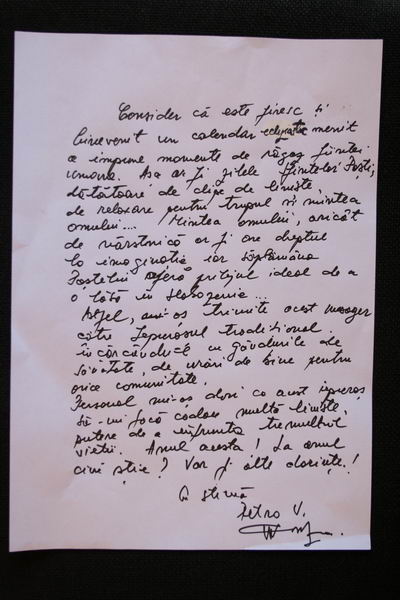 Consider că este firesc și
binevenit un calendar menit
a impune momente de răgaz ființei
umane. Așa ar fi zilele Sfintelor Paști,
dătătoare de clipe de liniște,
de relaxare pentru trupul și mintea
omului... Mintea omului, oricât
de vârstnică ar fi are dreptul
la imaginație iar săptămâna
Paștelui oferă prilejul ideal de a
o lăsa în slobozenie...
Astfel, mi-aș trimite acest mesager
către Iepurașul tradițional
încărcându-l cu gândurile de
sănătate, de urări de bine pentru
orice comunitate.
Personal mi-aș dori ca acest iepuraș
să-mi facă cadou multă liniște,
putere de a înfrunta tremultul
vieții. Anul acesta! La anul
cine știe? Vor fi alte dorințe!
Cu stimă
Petro V.